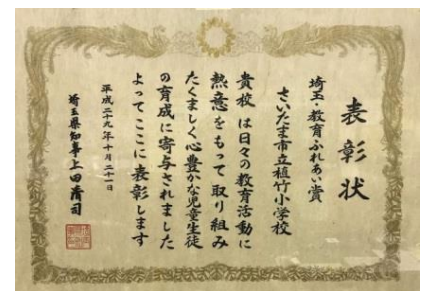 表彰状
埼玉・教育ふれあい賞
さいたま市立植竹小学校
貴校は日々の教育活動に
熱意をもって取り組み
たくましく心豊かな児童生徒
の育成に寄与されました
よってここに表彰します
平成二十九年十月二十一日
埼玉県知事上田清司